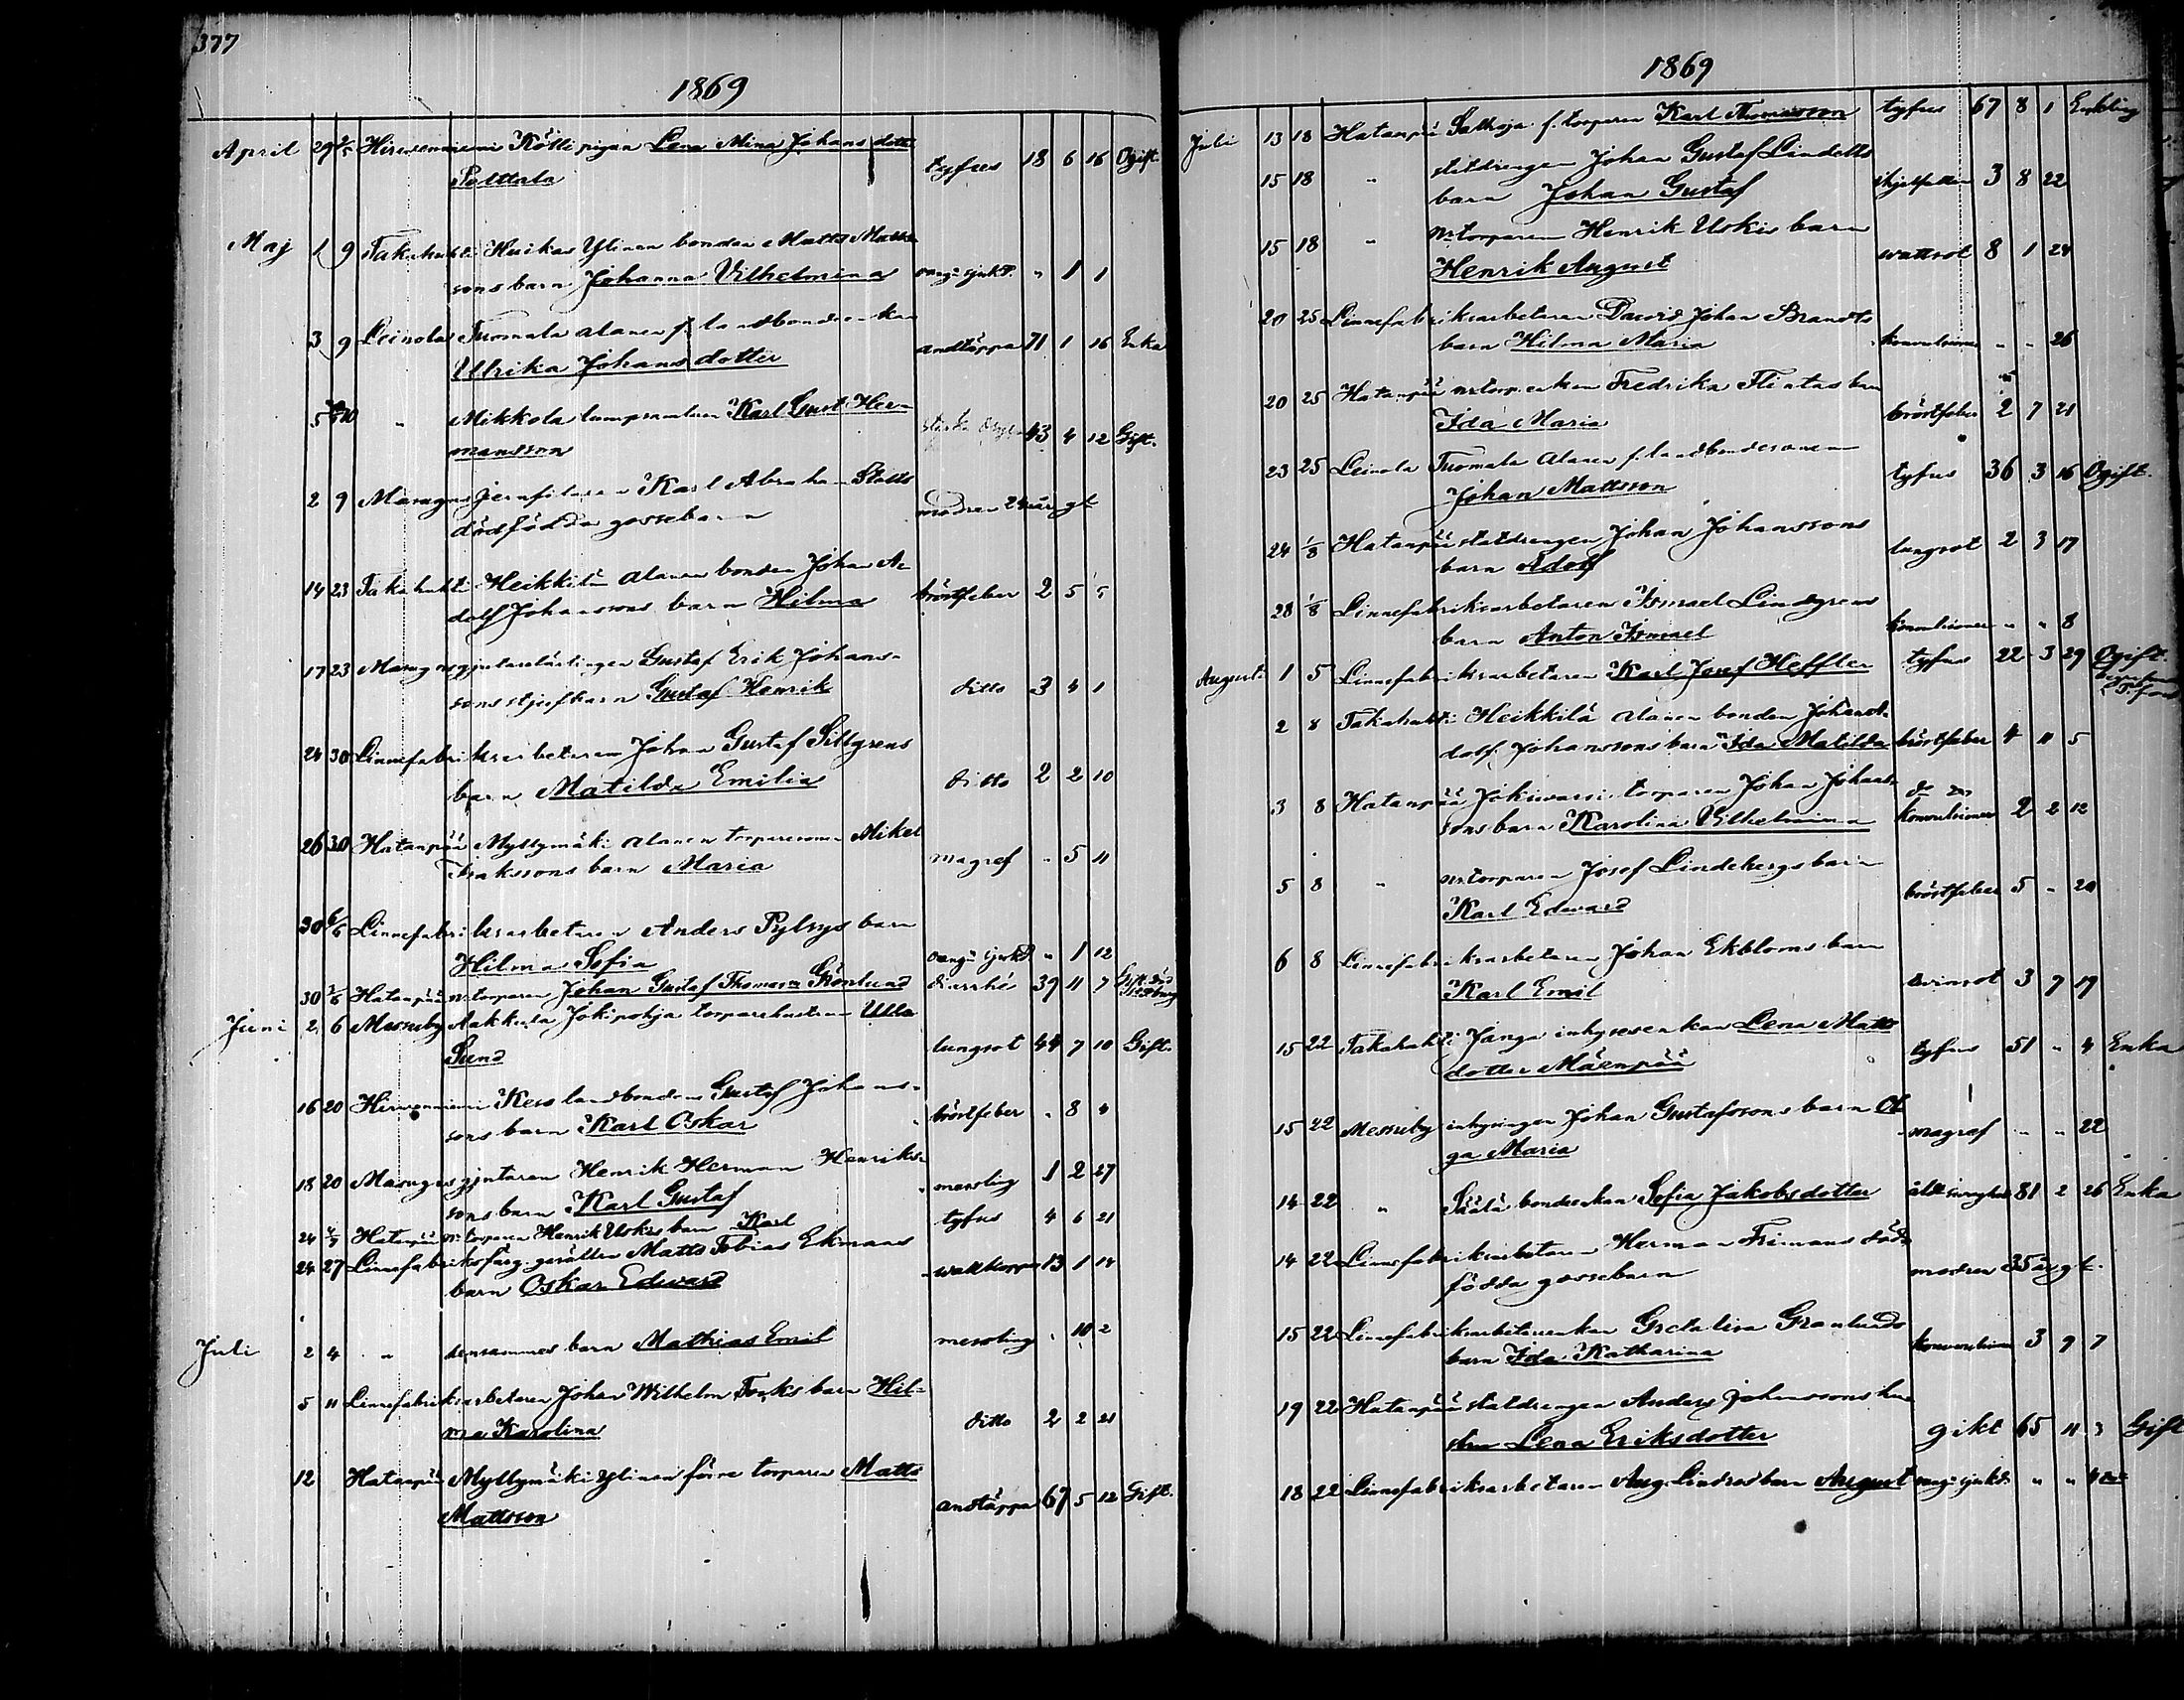 377
1869
April 29 2/5 Hirvenniemi Kölli pigan Lena Mina Johansdotter
Palttala tyfus 18 6 16 Ogift
Maj 1 9 Takahuhti Huikas Ylinen bonden Matts Matts
sons barn Johanna Vilhelmina sjukd. " 1 1
3 9 Leinola Tuomala Alanen f. landbondeenkan
Ulrika Johansdotter andtäppa 71 1 16 Enka
5 " Mikkola lumpsamlaren Karl Gust. Her-
mansson 43 4 12 Gift.
2 9 Masugns jernfilaren Karl Abraham
dödfödda gossebarn modren 24 år gl
14 23 Takahuhti Heikkilä Alanen bonden Johan A-
dolf Johanssons barn Hilma bröstfeber 2 5 5
17 23 Masugns gjutarelärlingen Gustaf Erik Johans-
sons stjufbarn Gustaf Henrik ditto 3 4 1
24 30 Linnefabriksarbetaren Johan Gustaf Sillgrens
barn Matilda Emilia ditto 2 2 10
26 30 Hatanpää Myllymäki Alanen torparesonen Mikel
Isakssons barn Maria magref " 5 11
30 6/6 Linnefabriksarbetaren Anders Pylsys barn
Hilma Sofia sjukd " 1 12
30 Hatanpää Johan Gustaf Thomasson Grönlund diarrhé 39 11 7 Gift
Juni 2 6 Messuby Aakkula Jokipohja torparehustrun Ulla
Sund lungsot 44 7 10 Gift.
16 20 Hirvenniemi Keso landbonden Gustaf Johans-
sons barn Karl Oskar bröstfeber " 8 4
18 20 Masugns gjutaren Henrik Herman Henriks-
sons barn Karl Gustaf messling 1 2 27
24 Hatanpää torparen Henrik Uskis barn Karl tyfus 4 6 21
24 27 Linnefabriks färg. gesällen Matts Tobias Ekmans
barn Oskar Edward 13 1 14
Juli 2 4 " densammes barn Mathias Emil messling " 10 2
5 11 Linnefabriksarbetaren Johan Wilhelm Fonks barn Hil-
ma Karolina ditto 2 2 21
12 Hatanpää Myllymäki Ylinen förre torparen Matts
Mattsson andtäppa 67 5 12 Gift.
1869
Juli 13 18 Hatanpää Satkoja f. torparen Karl Thomasson tyfus 67 8 1 Enkling
15 18 " statdrengen Johan Gustaf Lindells
barn Johan Gustaf 3 8 22
15 18 " torparen Henrik Uskis barn
Henrik August wattsot 8 1 24
20 25 Linnefabriksarbetaren David Johan Brandts
barn Hilma Maria konvulsioner " " 26
20 25 Hatanpää Fredrika Flintas barn
Ida Maria bröstfeber 2 7 21
23 25 Leinola Tuomala Alanen f. landbondesonen
Johan Mattsson tyfus 36 3 16 Ogift.
24 1/8 Hatanpää statdrengen Johan Johanssons
barn Adolf lungsot 2 3 17
28 1/8 Linnefabriksarbetaren Ismael Lindgrens
barn Anton Ismael konvulsioner " " 8
Augusti 1 5 Linnefabriksarbetaren Karl Josef Heffler tyfus 22 3 29 Ogift.
2 8 Takahuhti Heikkilä Alanen bonden Johan A-
dolf Johanssons barn Ida Matilda bröstfeber 4 11 5
3 8 Hatanpää Jokiwarsi torparen Johan Johans-
sons barn Karolina Vilhelmina konvulsioner 2 2 12
5 8 " torparen Josef Lindebergs barn
Karl Edward bröstfeber 5 " 20
6 8 Linnefabriksarbetaren Johan Ekbloms barn
Karl Emil 3 7 19
15 22 Takahuhti Janga inhysesenkan Lena Matts
dotter Mäenpää tyfus 51 " 4 Enka
15 22 Messuby inhysingen Johan Gustafssons barn Ol-
ga Maria magref " " 22
14 22 " Säälä bondeenkan Sofia Jakobsdotter 81 2 26 Enka
14 22 Linnefabriksarbetaren Herman Frimans död-
födda gossebarn modren 35 år gl.
15 22 Linnefabriksarbetareenkan Greta Lisa Granlunds
barn Ida Katharina konvulsioner 3 9 7
19 22 Hatanpää statdrengen Anders Johanssons hu-
stru Lena Eriksdotter gikt 65 11 3 Gift
18 22 Linnefabriksarbetaren Aug. Lindros barn August sjukd. " "